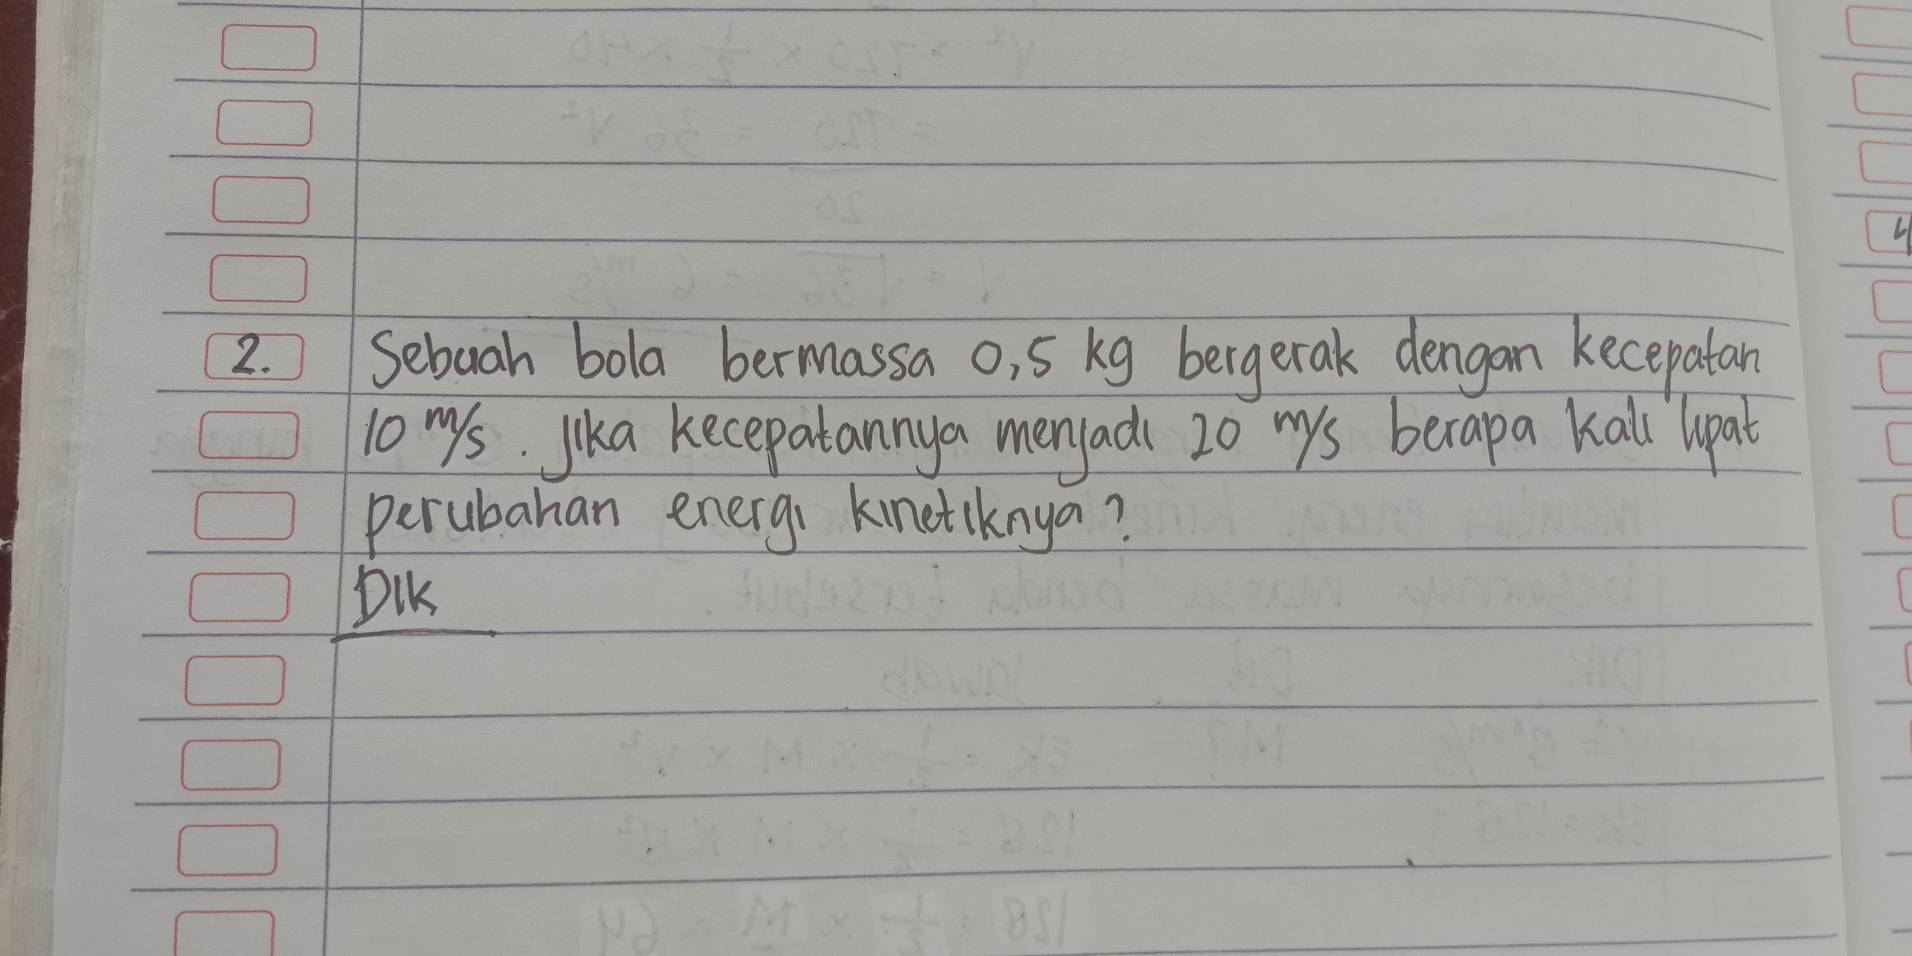 2. Sebuah bola bermassa 0,5 kg bergerak dengan kecepatan
10 m/s. Jika kecepatannya menjadi 20 m/s berapa kali lipat
perubahan energi kinetiknya?
Dik
4